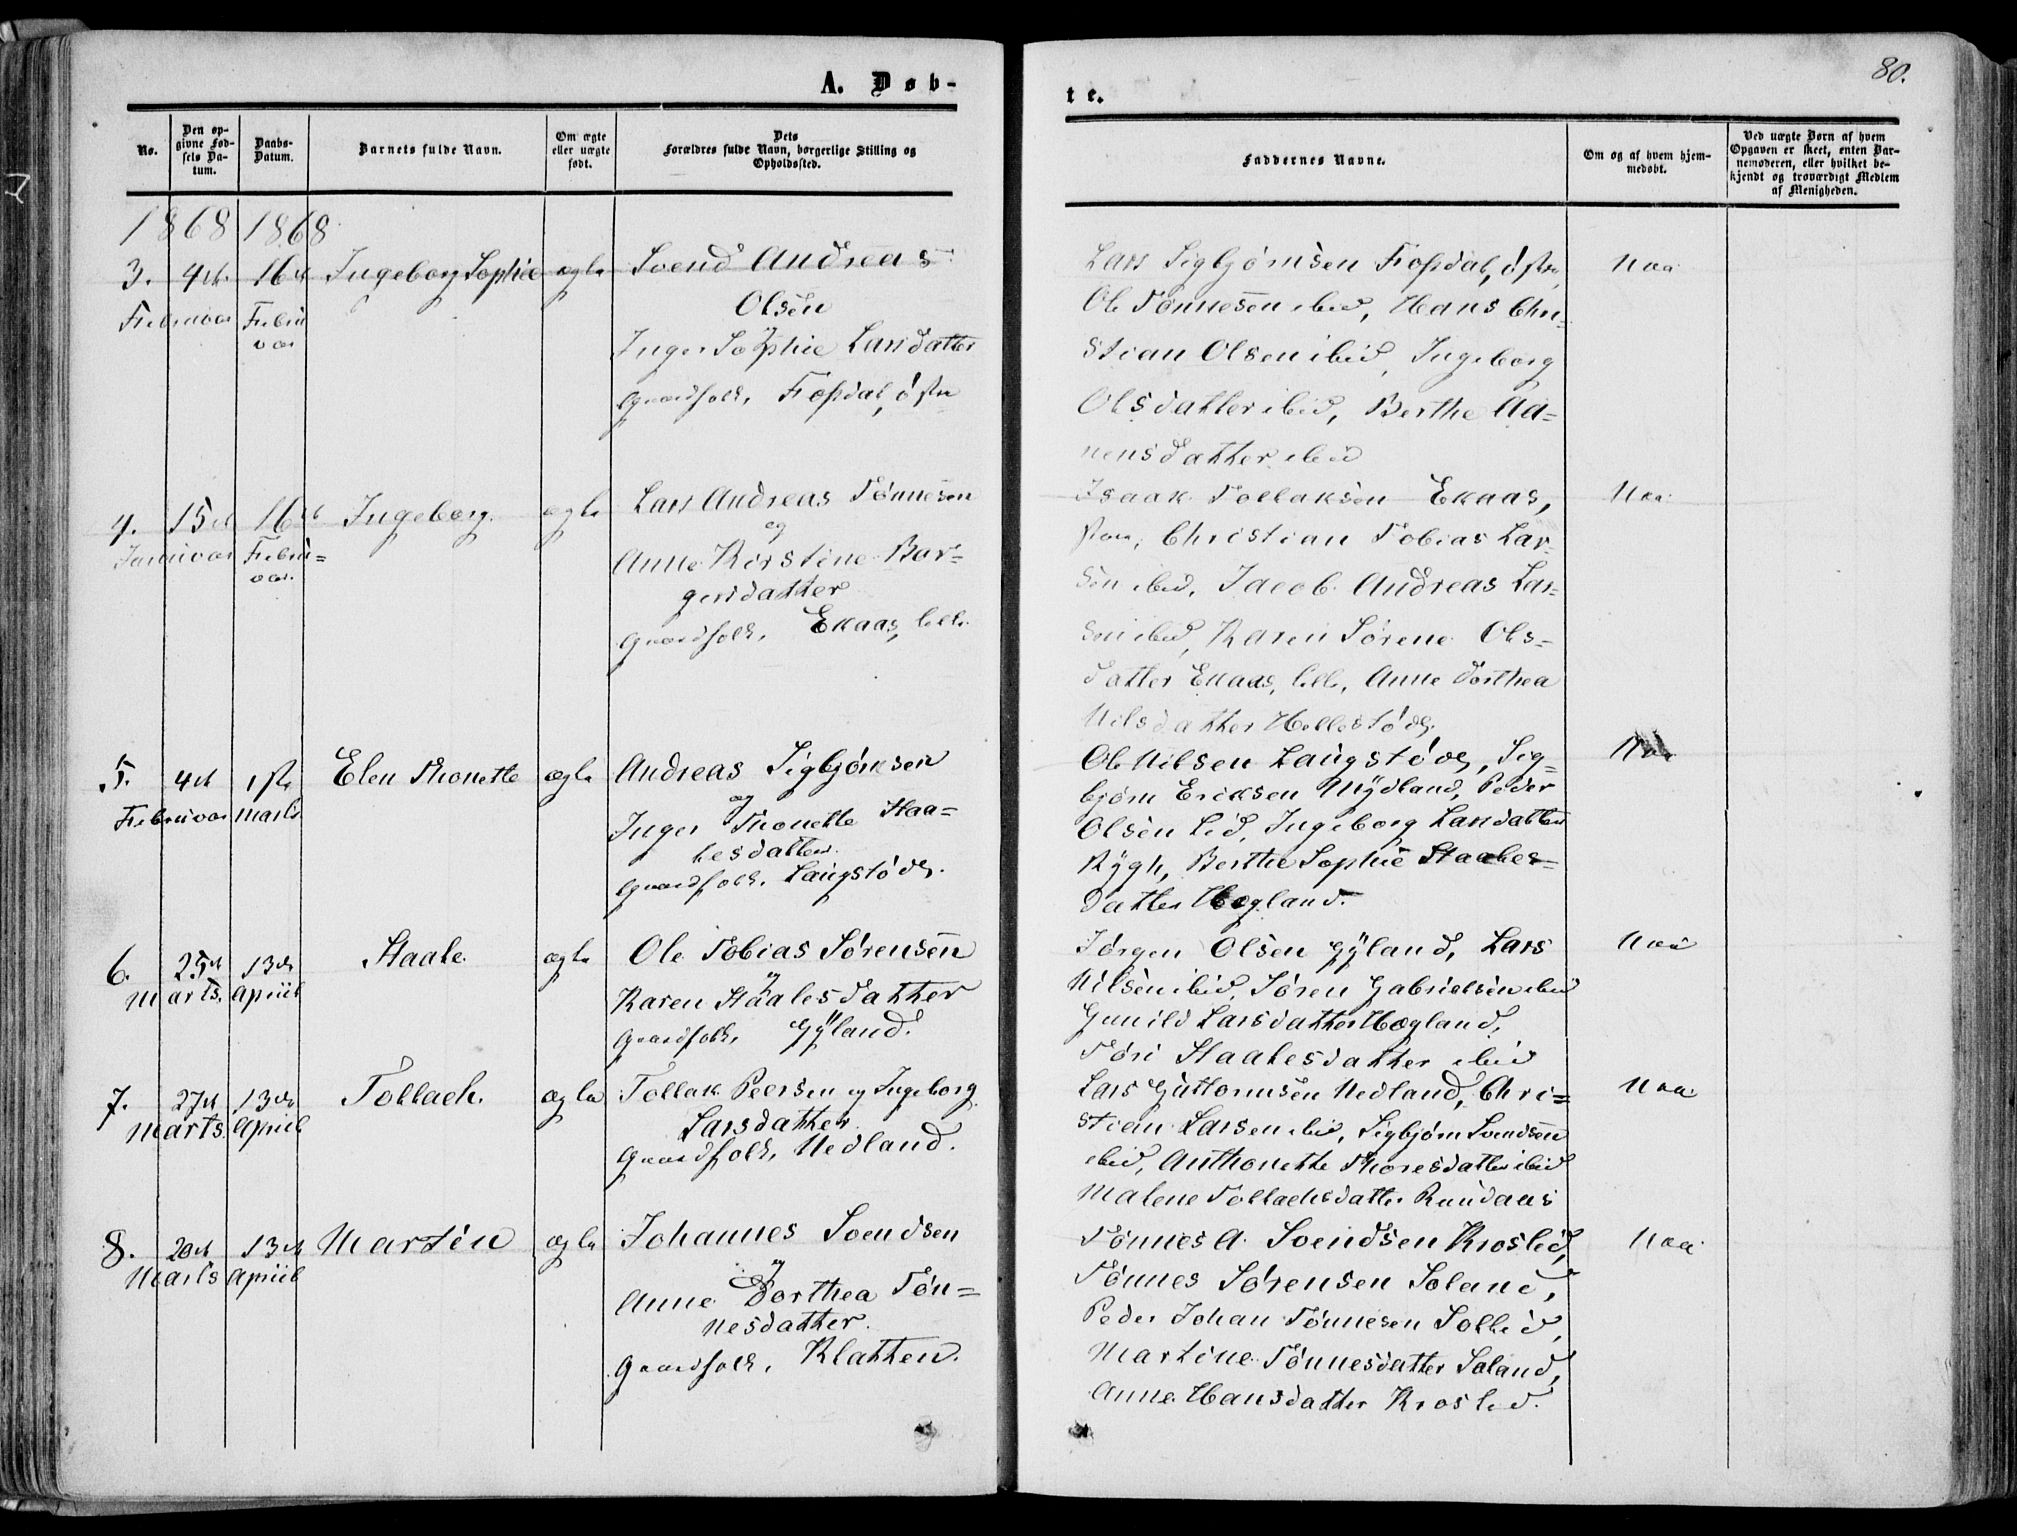 80.
A. Døb-
te.
No.
Den op-
givne Fød-
sels Da-
tum.
Daabs-
Datum.
Barnets fulde Navn.
Om ægte
eller uægte
født.
Dets
Forældres fulde Navn, borgerlige Stilling og
Opholdssted.
Faddernes Navne.
Om og af hvem hjem-
medøbt.
Ved uægte Børn af hvem
Opgaven er skeet, enten Bar-
nemoderen, eller hvilket be-
kjendt og troværdigt Medlem
af Menigheden.
1868 1868
3. 4de 16de Ingeborg Sophie ægte Svend Andreas
Februar Februar
Olsen
og
Inger Sophie Larsdatter
Gaardfolk, Fossdal, østre
Lars Sigbjørnsen Fossdal, østre
Ole Tønnesen ibid, Hans Chri-
stian Olsen ibid, Ingeborg
Olsdatter ibid, Berthe Aa-
nensdatter ibid
Naa
4. 15de 16de Ingeborg. ægte Lars Andreas Tønnesen
Januar Februar
og
Anne Kirstine Bør-
gesdatter
Gaardfolk, Ekaas, lille
Isaak Tollaksen Ekaas,
store, Christian Tobias Lar-
sen ibid, Jacob Andreas Lar-
sen ibid, Karen Sørene Ols-
datter Ekaas, lille, Anne Dorthea
Nilsdatter Hellestøde
Naa
5. 4de 1ste Elen Thonette ægte Andreas Sigbjørnsen
Februar Marts
og
Inger Thonette Staa-
lesdatter
Gaardfolk. Langstøde.
Ole Nilsen Langstøde, Sig-
bjørn Eriksen Mydland, Peder
Olsen Lid, Ingeborg Larsdatter
Rygh, Berthe Sophie Staales-
datter Hægland.
Naa
6. 25de 13de Staale. ægte Ole Tobias Sørensen
Marts. April
og
Karen Staalesdatter
Gaardfolk, Gÿland.
Jørgen Olsen Gÿland, Lars
Nilsen ibid, Søren Gabrielsen ibid
Gunild Larsdatter Hægland,
Tøri Staalesdatter ibid
Naa
7. 27de 13de Tollach. ægte Tollak Peersen og Ingeborg
Marts. April
Larsdatter
Gaardfolk, Nedland.
Lars Guttormsen Nedland, Chri-
stian Larsen ibid, Sigbjørn Svendsen
ibid, Anthonette Thoresdatter ibid
Malene Tollachsdatter Rundaas
Naa
8. 20de 13de Martin ægte Johannes Svendsen
Marts April
og
Anne Dorthea Tøn-
nesdatter.
Gaardfolk, Klatten.
Tønnes A. Svendsen Kroslid,
Tønnes Sørensen Soland,
Peder Johan Tønnesen Sollid,
Martine Tønnesdatter Soland,
Anne Hansdatter Kroslid.
Naa